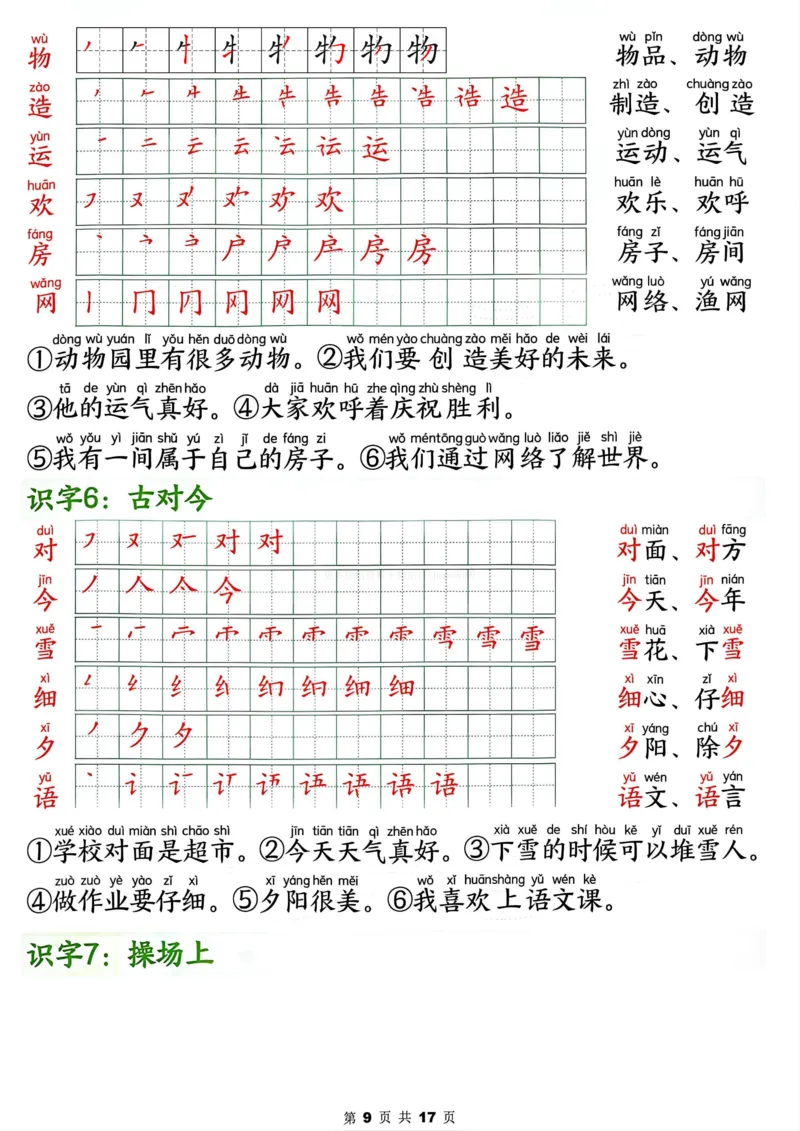 wù wù pǐn dòng wù
物 物品、动物
zào zhì zào chuàng zào
造 制造、创造
yùn yùn dòng yùn qì
运 运动、运气
huān huān lè huān hū
欢 欢乐、欢呼
fáng fáng zǐ fáng jiān
房 房子、房间
wǎng wǎng luò yú wǎng
网 网络、渔网
dòng wù yuán lǐ yǒu hěn duō dòng wù wǒ mén yào chuàng zào měi hǎo de wèi lái
①动物园里有很多动物。②我们要创造美好的未来。
tā de yùn qì zhēn hǎo dà jiā huān hū zhe qìng zhù shèng lì
③他的运气真好。④大家欢呼着庆祝胜利。
wǒ yǒu yì jiān shǔ yú zì jǐ de fáng zi wǒ mén tōng guò wǎng luò liǎo jiě shì jiè
⑤我有一间属于自己的房子。⑥我们通过网络了解世界。
识字6：古对今
duì duì miàn duì fāng
对 对面、对方
jīn jīn tiān jīn nián
今 今天、今年
xuě xuě huā xià xuě
雪 雪花、下雪
xì xì xīn zǐ xì
细 细心、仔细
xī xī yáng chú xī
夕 夕阳、除夕
yǔ yǔ wén yǔ yán
语 语文、语言
xué xiào duì miàn shì chāo shì jīn tiān tiān qì zhēn hǎo xià xuě de shí hòu kě yǐ duī xuě rén
①学校对面是超市。②今天天气真好。③下雪的时候可以堆雪人。
zuò zuò yè yào zǐ xì xī yáng hěn měi wǒ xǐ huān shàng yǔ wén kè
④做作业要仔细。⑤夕阳很美。⑥我喜欢上语文课。
识字7：操场上
第 9 页 共 17 页